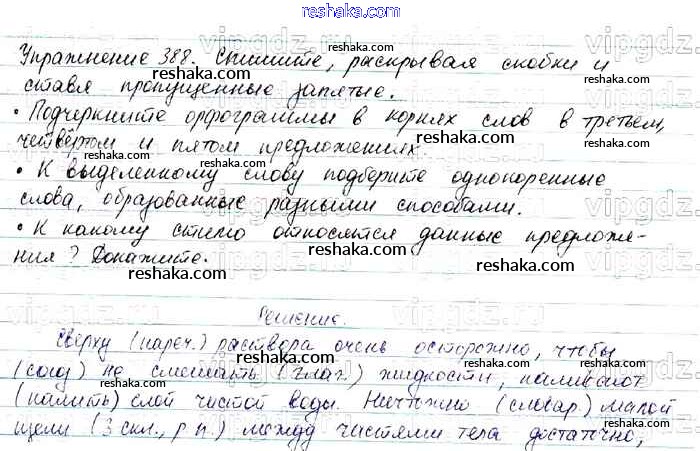 reshaka.com
Упражнение 388. Спишите, раскрывая скобки и
ставя пропущенные запятые.
• Подчеркните орфограммы в корнях слов в третьем,
четвёртом и пятом предложениях.
• К выделенному слову подберите однокоренные
слова, образованные разными способами.
• К какому стилю относятся данные предложе-
ния? Докажите.
Решение.
Сверху (нареч.) раствора очень осторожно, чтобы
(союз) не смешать (глаг.) жидкости, наливают
(налить) слой чистой воды. Ничтожно (словар.) малой
щели (3 скл., р п.) между частями тела достаточно,